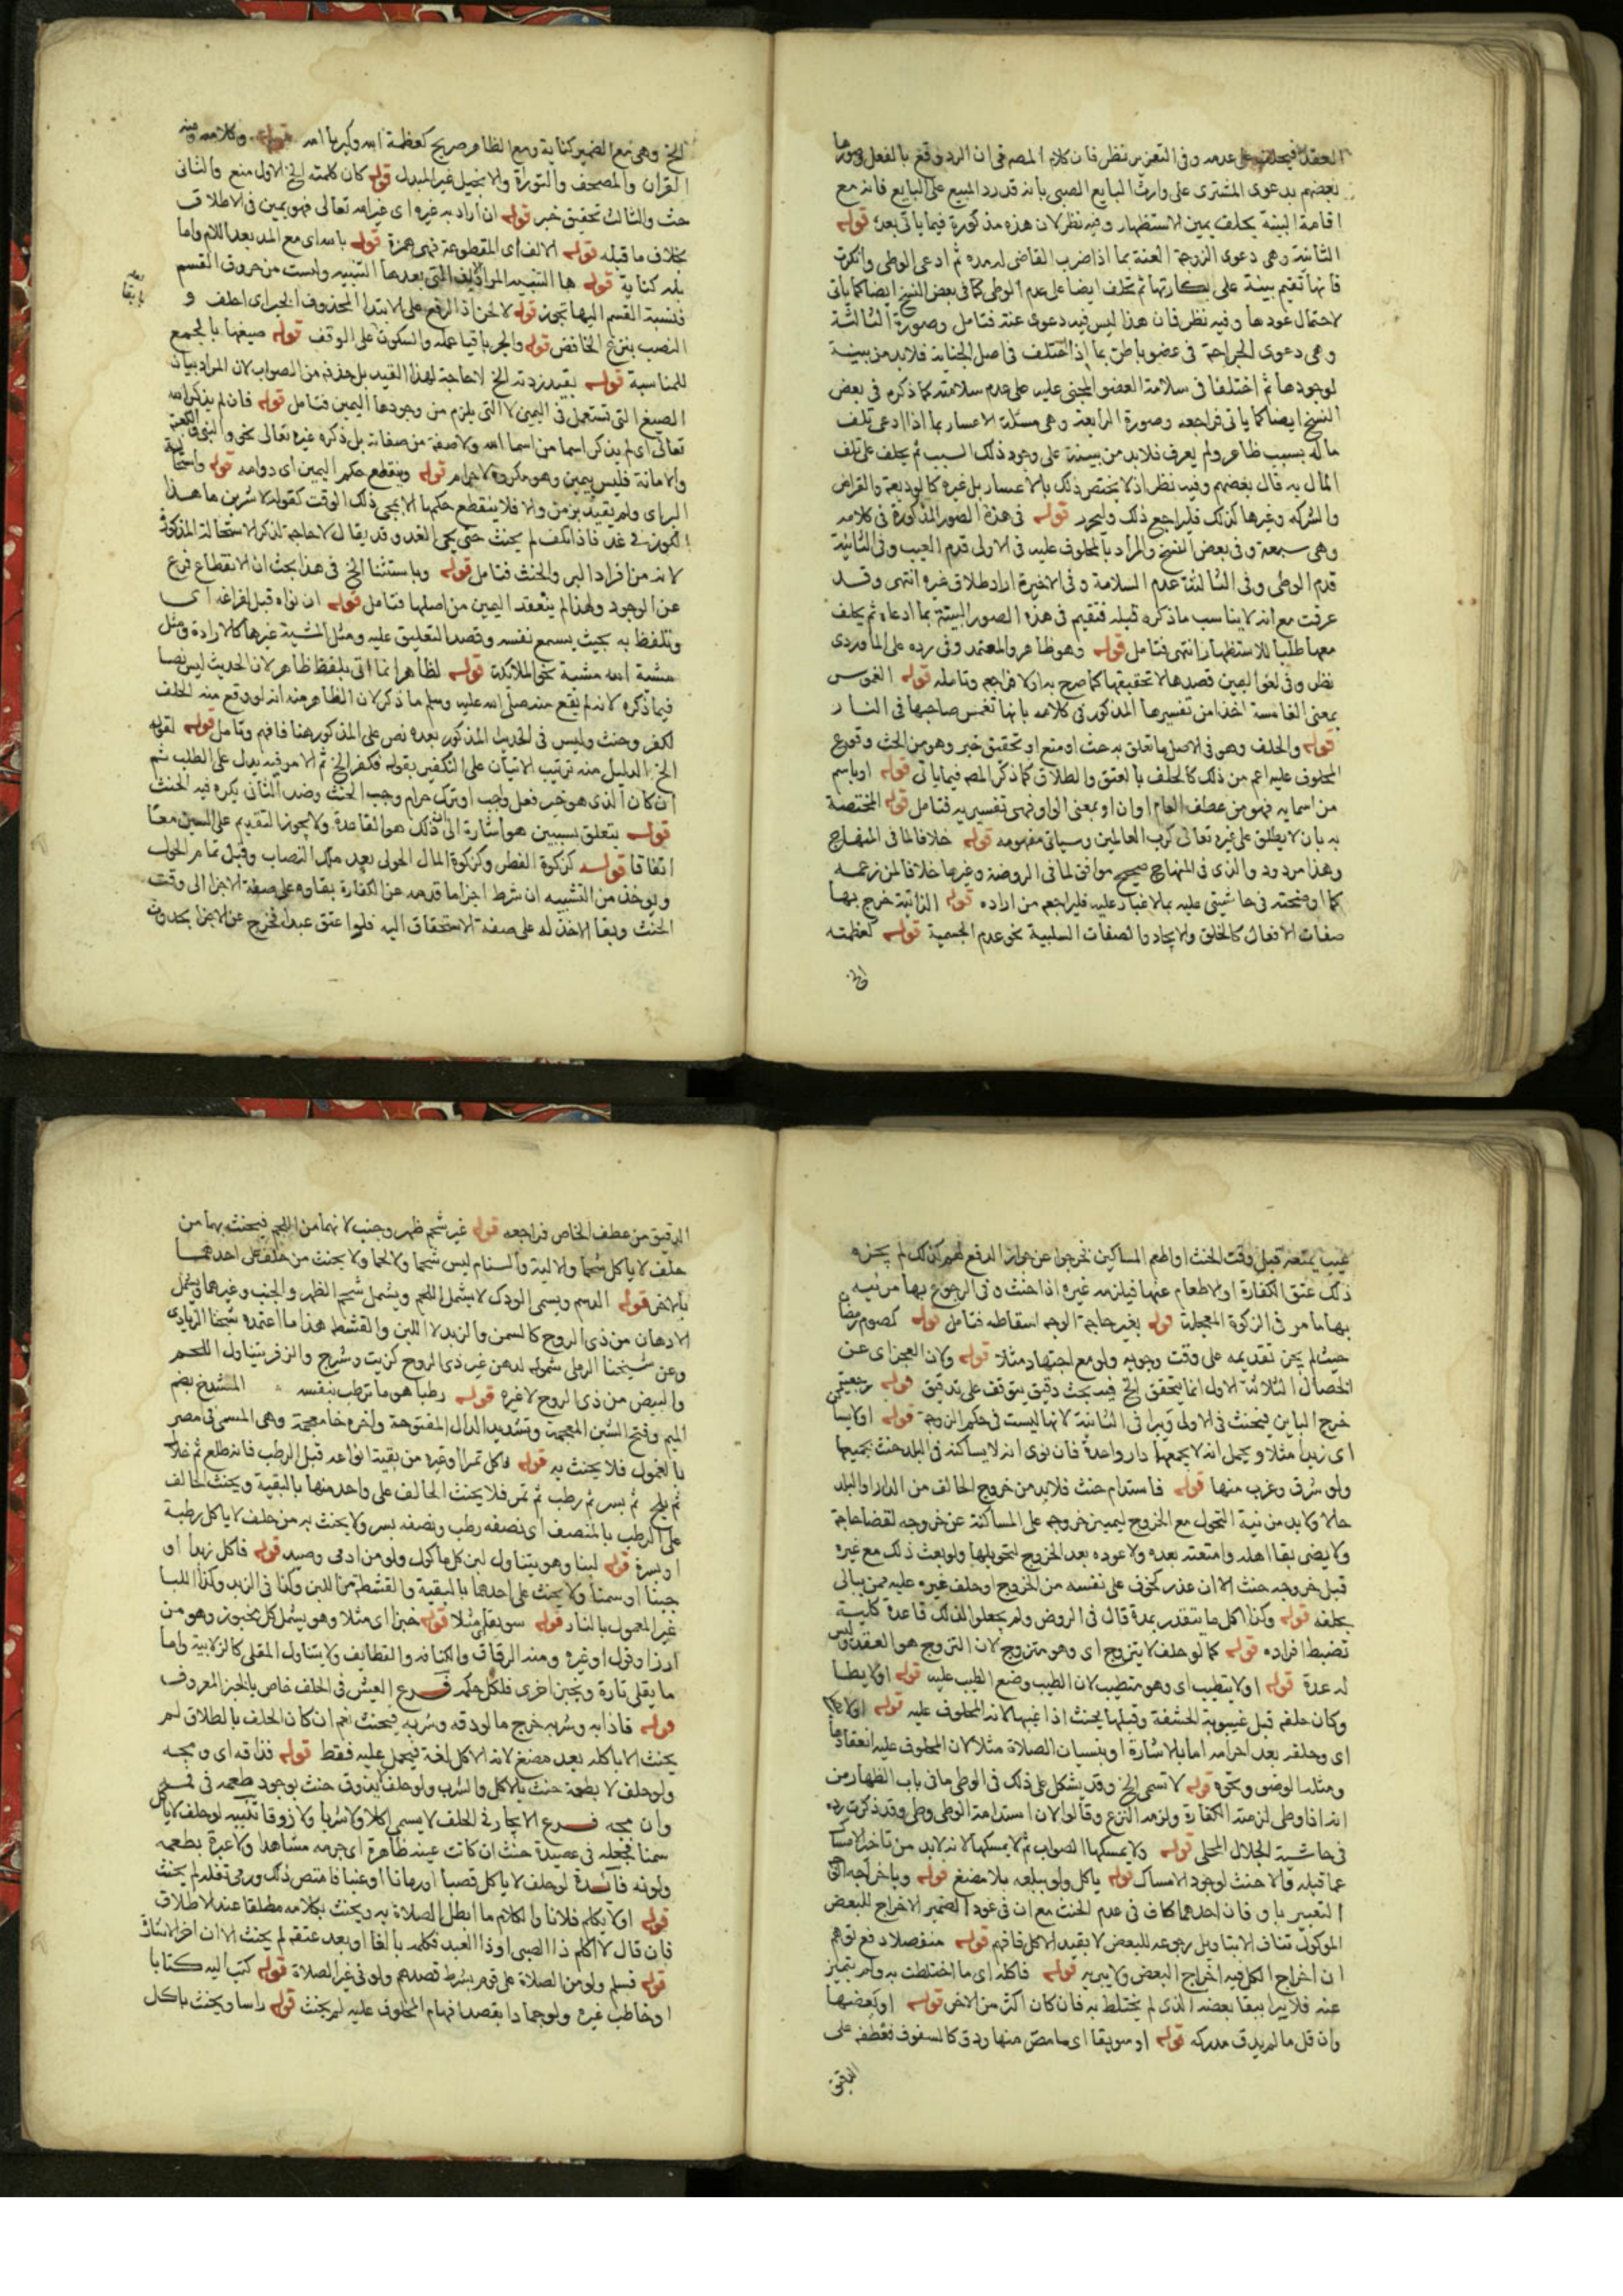 العقد فيحلف على عدمه وفى التعزير نظر فان كلام المصـ فى ان الرد وقع بالفعل وصورها
بعضهم بدعوى المشترى على وارث البايع الصبى بانه قد رد المبيع على البايع فانه مع
اقامة البينة يحلف يمين الاستظهار وفيه نظر لان هذه مذكورة فيما ياتى بعد قوله
الثانية وهى دعوى الزوجة العنة بما اذا ضرب القاضى له مده ثم ادعى الوطى وانكرت
فانها تقيم بينة على بكارتها ثم تحلف ايضا على عدم الوطى كما فى بعض النسخ ايضا كما ياتى
لاحتمال عودها وفيه نظر فان هذا ليس فيه دعوى عنة فتامل وصورة الثالثة
وهى دعوى الجراحة فى عضو باطن بما اذا اختلف فى اصل الجناية فلابد من بينة
لوجودها ثم اختلفا فى سلامة العضو المجنى عليه على عدم سلامته كما ذكره فى بعض
النسخ ايضا كما ياتى فراجعه وصورة الرابعة وهى مسئلة الاعسار بما اذا ادعى تلف
ماله بسبب ظاهر ولم يعرف فلابد من بينة على وجود ذلك السبب ثم يحلف على تلف
المال به قال بعضهم وفيه نظر اذ لا يختص ذلك بالاعسار بل غيره كالوديعة والقراض
والشركه وغيرها كذلك فليراجع ذلك وليحرر قوله فى هذه الصور المذكورة فى كلامه
وهى سبعة وفى بعض النسخ والمراد بالمحلوف عليه فى الاولى قدم العيب وفى الثانية
عدم الوطى وفى الثالثة عدم السلامة وفى الاخيرة اراد طلاق غيره انتهى وقد
عرفت مع انه لا يناسب ما ذكره قبله فتقيم فى هذه الصور البينة بما ادعاه ثم يحلف
معها طلبا للاستظهار انتهى فتامل قوله وهو ظاهر والمعتمد وفى رده على الماوردى
نظر وفى لغو اليمين قصدها لا تحقيقها كما صرح به اولا فراجعه وتامله قوله الغموس
بمعنى الغامسة اخذا من تفسيرها المذكور فى كلامه بانها تغمس صاحبها فى النار
قوله والحلف وهو فى الاصل ما تعلق به حث او منع او تحقيق خبر وهو من الحث وقوع
المحلوف عليه اعم من ذلك كالحلف بالعتق والطلاق كما ذكر المصـ فيما ياتى قوله او باسم
من اسمايه فهو من عطف العام او ان او بمعنى الواو فهى تفسيريه فتامل قوله المختصة
به بان لا يطلق على غيره تعالى كرب العالمين وسياتى مفهومه قوله خلافا لما فى المنهاج
وهذا مردود والذى فى المنهاج صحيح موافق لما فى الروضة وغيرها خلافا لمن زعمه
كما اوضحته فى حاشيتى عليه بما لا غبار عليه فليراجعه من اراده قوله الذاتية خرج بها
صفات الافعال كالخلق والايجاد والصفات السلبية نحو عدم الجسمية قوله كعظمته
الخ
الخ وهى مع الضمير كناية ومع الظاهر صريح كعظمة الله وكبريا الله قوله وكلامه ومنه
القران والمصحف والتوراة والانجيل غير المبدل قوله كان كلمته الخ الاول منع والثانى
حث والثالث تحقيق خبر قوله ان اراد به غيره اى غير الله تعالى فهو يمين فى الاطلاق
بخلاف ما قبله قوله الالف اى المقطوعة فهى همزة قوله بالله اى مع المد بعد اللام واما
بله كناية قوله ها التنبيه المراد التى بعدها التنبيه وليست من حروف القسم
فنسبة القسم اليها تجوز قوله لا لحن اذ الرفع على الابتدا المحذوف الخبر اى احلف و
النصب بنزع الخافض قوله والجر باقيا عمله والسكون على الوقف قوله صيغها بالجمع
للمناسبة قوله بقيد زدته الخ لا حاجة لهذا القيد بل حذفه من الصواب لان المراد بيان
الصيغ التى تستعمل فى اليمين لا التى يلزم من وجودها اليمين فتامل قوله فان لم يذكر الله
تعالى اى لم يذكر اسما من اسما الله ولا صفة من صفاته بل ذكره غيره تعالى نحو والنبى والكعبة
والامانة فليس بيمين وهو مكروه لا حرام قوله وينقطع حكم اليمين اى دوامه قوله واستحالة
البر اى ولم يقيد بزمن والا فلا ينقطع حكمها الا بمجى ذلك الوقت كقوله لا شربن ما هذا
الكوز فى غد فاذا انكف لم يحنث حتى يجى الغد وقد يقال لا حاجة لذكر الاستحالة المذكورة
لانه من افراد البر والحنث فتامل قوله وباستثنا الخ فى هذا بحث ان الانقطاع فرع
عن الوجود ولهذا لم ينعقد اليمين من اصلها فتامل قوله ان نواه قبل فراغه اى
وتلفظ به بحيث يسمع نفسه وقصد التعليق عليه ومثل المشية غيرها كالارادة ومثل
مشية الله مشية نحو الملائكة قوله لظاهر انما اتى بلفظ ظاهر لان الحديث ليس نصا
فيما ذكره لانه لم يقع منه صلى الله عليه وسلم ما ذكر لان الظاهر منه انه لو وقع منه الحلف
لكفر وحنث وليس فى الحديث المذكور بعده نص على المذكور هنا فافهم وتامل قوله لقوله
الخ الدليل منه ترتيب الاتيان على التكفير بقوله فكفر الخ ثم الامر فيه يدل على الطلب ثم
ان كان الذى هو خير فعل واجب او ترك حرام وجب الحنث وضد الثانى يكره فيه الحنث
قوله يتعلق بسببين هو اشارة الى ذلك هو القاعدة ولا يجوز التقديم على السببين معا
اتفاقا قوله كزكوة الفطر وكزكوة المال الحولى بعد ملك النصاب وقبل تمام الحول
ويوخذ من التشبيه ان شرط اجزا ما قدمه عن الكفارة بقاوه على صفة الاجزا الى وقت
الحنث وبقا الاخذ له على صفة الاستحقاق اليه فلو اعتق عبدا فخرج عن الاجزا بحدوث
عيب يمنعه قبل وقت الحنث او اطعم المساكين فخرجوا عن جواز الدفع لهم كذلك لم يجزه
ذلك عتق الكفارة او الاطعام عنها فيلزمه غيره اذا حنث وفى الرجوع بها مر فيه
بها ما مر فى الزكوة المعجلة قوله بغير حاجة الوجه اسقاطه فتامل قوله كصوم رمضان
حيث لم يجز تقديمه على وقت وجوبه ولو مع اجتهاد مثلا قوله ولان العجز اى عن
الخصال الثلاثة الاول انما يتحقق الخ فيه بحث دقيق يتوقف على تدقيق قوله رجعيتى
خرج الباين فيحنث فى الاولى ويبرا فى الثانية لانها ليست فى حكم الزوجة قوله او لا يسا
اى زيدا مثلا ويحمل انه لا يجمعهما دار واحدة فان نوى انه لا يساكنه فى البلد حنث بجميعها
ولو شرق وغرب منها قوله فاستدام حنث فلابد من خروج الحالف من الدار او البلد
حالا ولا بد من نية التحول مع الخروج ليميز خروجه على المساكنة عن خروجه لقضا حاجة
ولا يضر بقا اهله وامتعته بعده ولا عوده بعد الخروج لتحويلها ولو بعث ذلك مع غيره
قبل خروجه حنث الا ان عذر كخوف على نفسه من الخروج او حلف غيره عليه ممن يبالى
بحلفه قوله وكذا كل ما يتقدر بمدة قال فى الروض ولم يجعلوا لذلك قاعدة كلية
تضبط افراده قوله كما لو حلف لا يتزوج اى وهو متزوج لان التزوج هو العقد وليس
له عدة قوله او لا يتطيب اى وهو متطيب لان الطيب وضع الطيب عليه قوله او لا يطا
وكان حلفه قبل غيبوبة الحشفة وقبلها يحنث اذا غيبها لانه المحلوف عليه قوله او لا
اى وحلفه بعد احرامه اما بالاشارة او بنسيان الصلاة مثلا لان المحلوف عليه انعقادها
ومثلها الوضو ونحوه قوله لا تسمى الخ وقد يشكل على ذلك فى الوطى ما فى باب الظهار من
انه اذا وطى لزمته الكفارة ولزمه النزع وقالوا لان استدامة الوطى وطى وقد ذكرت رده
فى حاشية الجلال المحلى قوله ولا يمسكها الصواب ثم لا يمسكها لانه لابد من تاخير الامساك
عما قبله والا حنث لوجود الامساك قوله ياكل ولو ببلعه بلا مضغ قوله وباخراجه الى
التعبير باو فان احدهما كاف فى عدم الحنث مع ان فى عود الضمير الاخراج للبعض
الموكول تناف الابتا وبل رجوعه للبعض لا بقيد الاكل فافهم قوله منفصلا دفع توهم
ان اخراج الكل فيه اخراج البعض ولا يبر به قوله فاكله اى ما اختلطت به ولم يتميز
عنه فلا يبرا ببقا بعضه الذى لم يختلط به فان كان اكثر من الاخر قوله او بعضها
وان قل ما لم يدق مدركه قوله او سويقا اى ما مص منها ودق كالسفوف فعطفه على
الدقيق
الدقيق من عطف الخاص فراجعه قوله غير شحم ظهر وجنب لانهما من اللحم فيحنث بهما من
حلف لا ياكل شحما والالية والسنام ليس شحما ولا لحما ولا يحنث من حلف على احدهما
بالاخر قوله الدسم ويسمى الودك لا يشمل اللحم ويشمل شحم الظهر والجنب وغيرهما ويشمل
الادهان من ذى الروح كالسمن والزبد لا اللبن والقشط هذا ما اعتمده شيخنا الزيادى
وعن شيخنا الرملى شموله لدهن غير ذى الروح كزيت وشيرج والزفر يتناول اللحم
والبيض من ذى الروح لا غيره قوله رطبا هو ما ترطب بنفسه المشدخ بضم
الميم وفتح الشين المعجمة وتشديد الدال المفتوحة واخره خا معجمة وهى المسمى فى مصر
بالغمول فلا يحنث به قوله فاكل تمرا او غيره من بقية انواعه قبل الرطب فانه طلع ثم خلال
ثم بلح ثم بسر ثم رطب ثم تمر فلا يحنث الحالف على واحد منها بالبقية ويحنث الحالف
على الرطب بالمنصف اى نصفه رطب ونصفه بسر ولا يحنث به من حلف لا ياكل رطبة
او بسرة قوله لبنا وهو يتناول لبن كل ماكول ولو من ادمى وصيد قوله فاكل زبدا او
جبنا او سمنا ولا يحنث على احدها بالبقية والقشطة من اللبن وكذا فى الزبد وكذا اللبا
غير المعمول بالنار قوله سويقا مثلا قوله خبزا اى مثلا وهو يشمل كل مخبوز وهو من
ارز او فول او غيره ومنه الرقاق والكنافه والقطايف ولا يتناول المقلى كالزلابية واما
ما يقلى تارة ويخبز اخرى فلكل حكمه فرع العيش فى الحلف خاص بالخبز المعروف
قوله فاذابه وشربه خرج ما لو دقه وشربه فيحنث نعم ان كان الحلف بالطلاق لم
يحنث الا باكله بعد مضغ لانه الاكل لغة فيحمل عليه فقط قوله فذاقه اى ومجه
ولو حلف لا يطعمه حنث بالاكل والشرب ولو حلف لا يذوق حنث بوجود طعمه فى فمه
وان مجه فرع الايجار فى الحلف لا يسمى اكلا ولا شربا ولا ذوقا تنبيه لو حلف لا ياكل
سمنا فجعله فى عصيدة حنث ان كانت عينه ظاهرة اى جرمه مشاهدا ولا عبرة بطعمه
ولونه فائدة لو حلف لا ياكل قصبا او رمانا او عنبا فامتص ذلك ورمى تفله لم يحنث
قوله او لا يكلم فلانا والكلام ما ابطل الصلاة به ويحنث بكلامه مطلقا عند الاطلاق
فان قال لا اكلم ذا الصبى او ذا العبد فكلمه بالغا او بعد عتقه لم يحنث الا ان اخر الاشارة
قوله فسلم ولو من الصلاة على قوم بشرط قصدهم ولو فى غير الصلاة قوله كتب اليه كتابا
او خاطب غيره ولو جمادا بقصد افهام المحلوف عليه لم يحنث قوله راسا ويحنث باكل